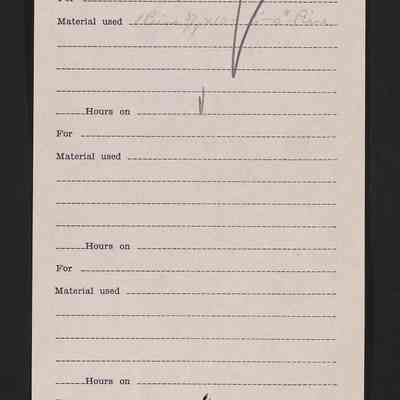 Material used
Hours on
For
Material used
Hours on
For
Material used
Hours on